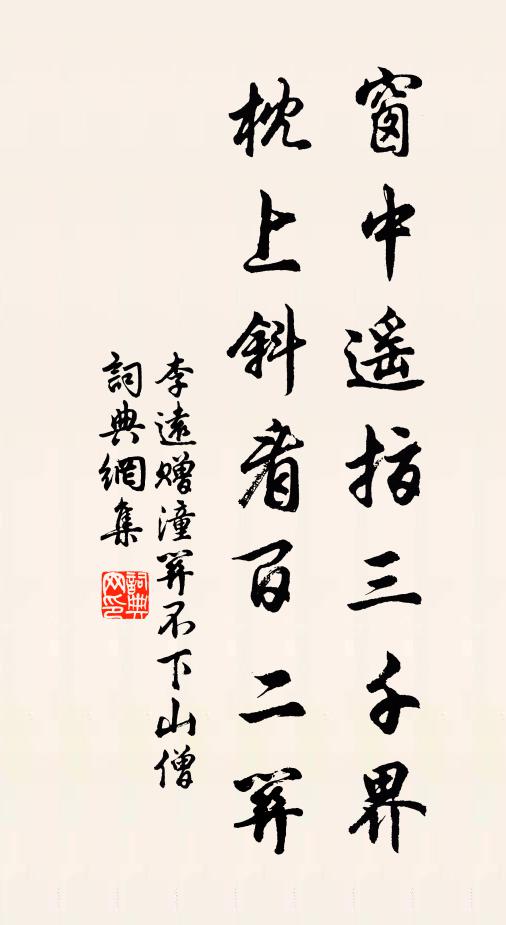 窗中遥指三千界
枕上斜看百二關
李遠贈潼關不下山僧
詞典網集
詞典网印